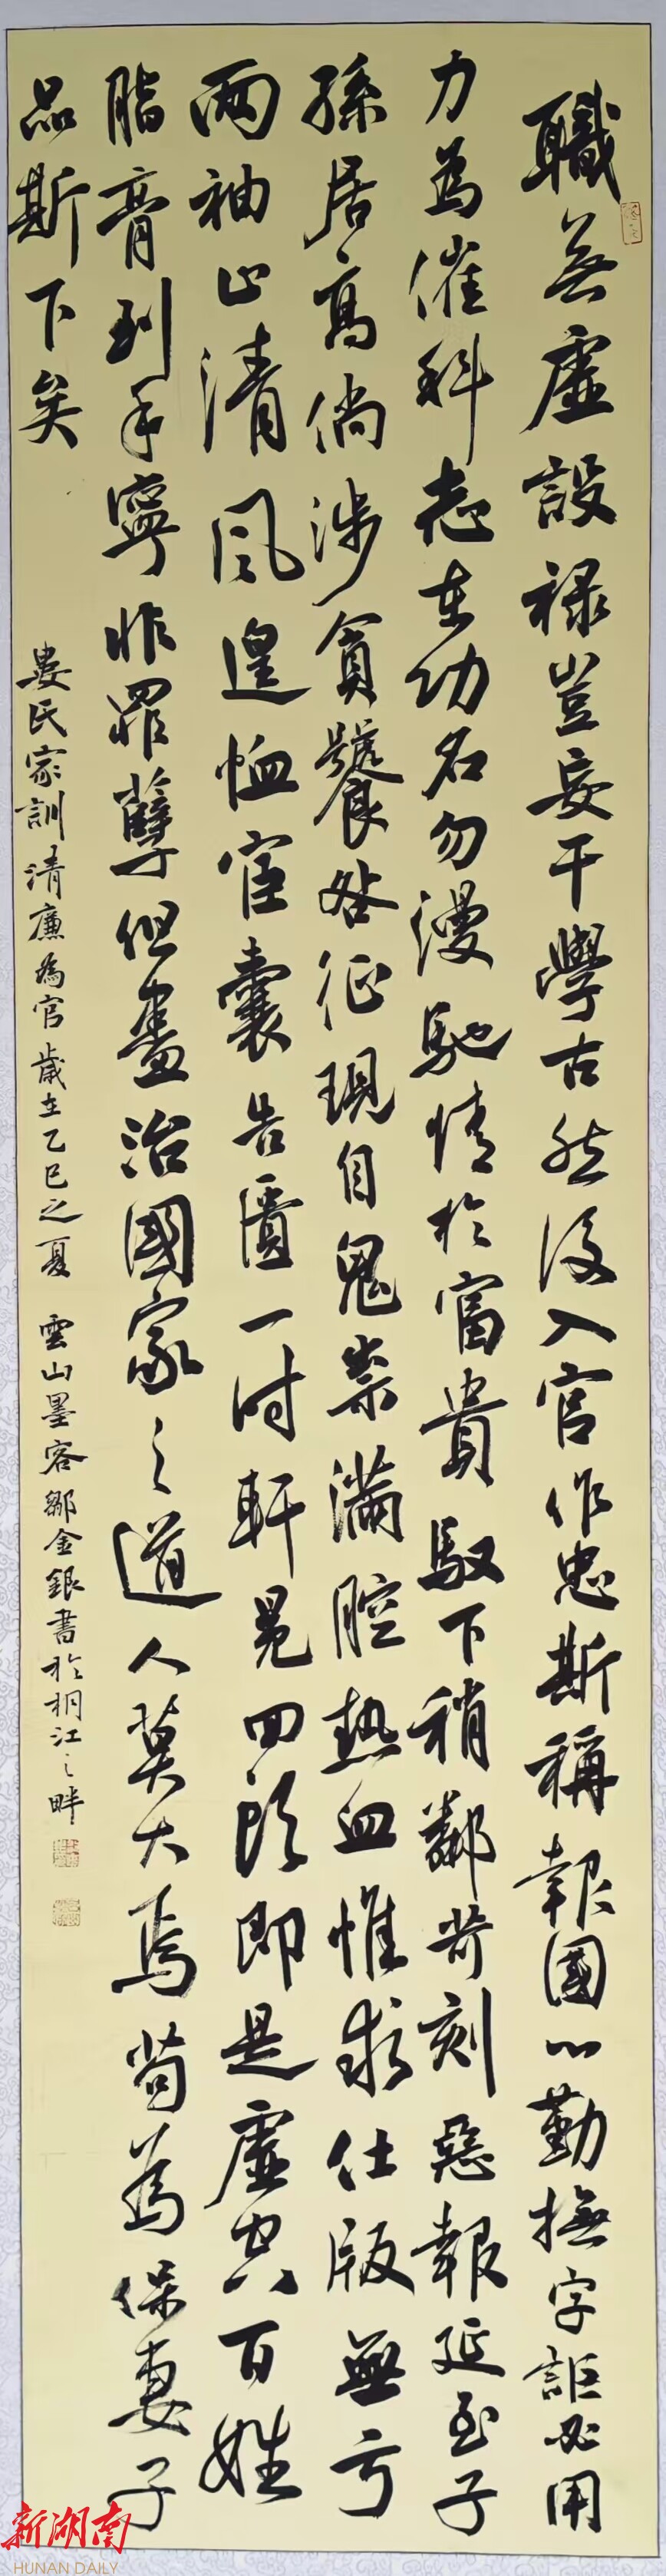 職無虛設祿豈妄干學古然後入官作忠斯稱報國心勤撫字詎必用
力為催科志在功名勿漫馳情於富貴馭下稍鄰苛刻惡報延至子
孫居高倘涉貪饕咎征現自鬼祟滿腔熱血惟求仕版無亏
兩袖止清風遑恤宦囊告匱一时軒冕回頭即是虛空百姓
脂膏到手寧非罪孽但盡治國家之道人莫大焉苟為保妻子
品斯下矣
婁氏家訓清廉為官歲在乙巳之夏 雲山墨客鄒金銀書於桐江之畔
新湖南
HUNAN DAILY